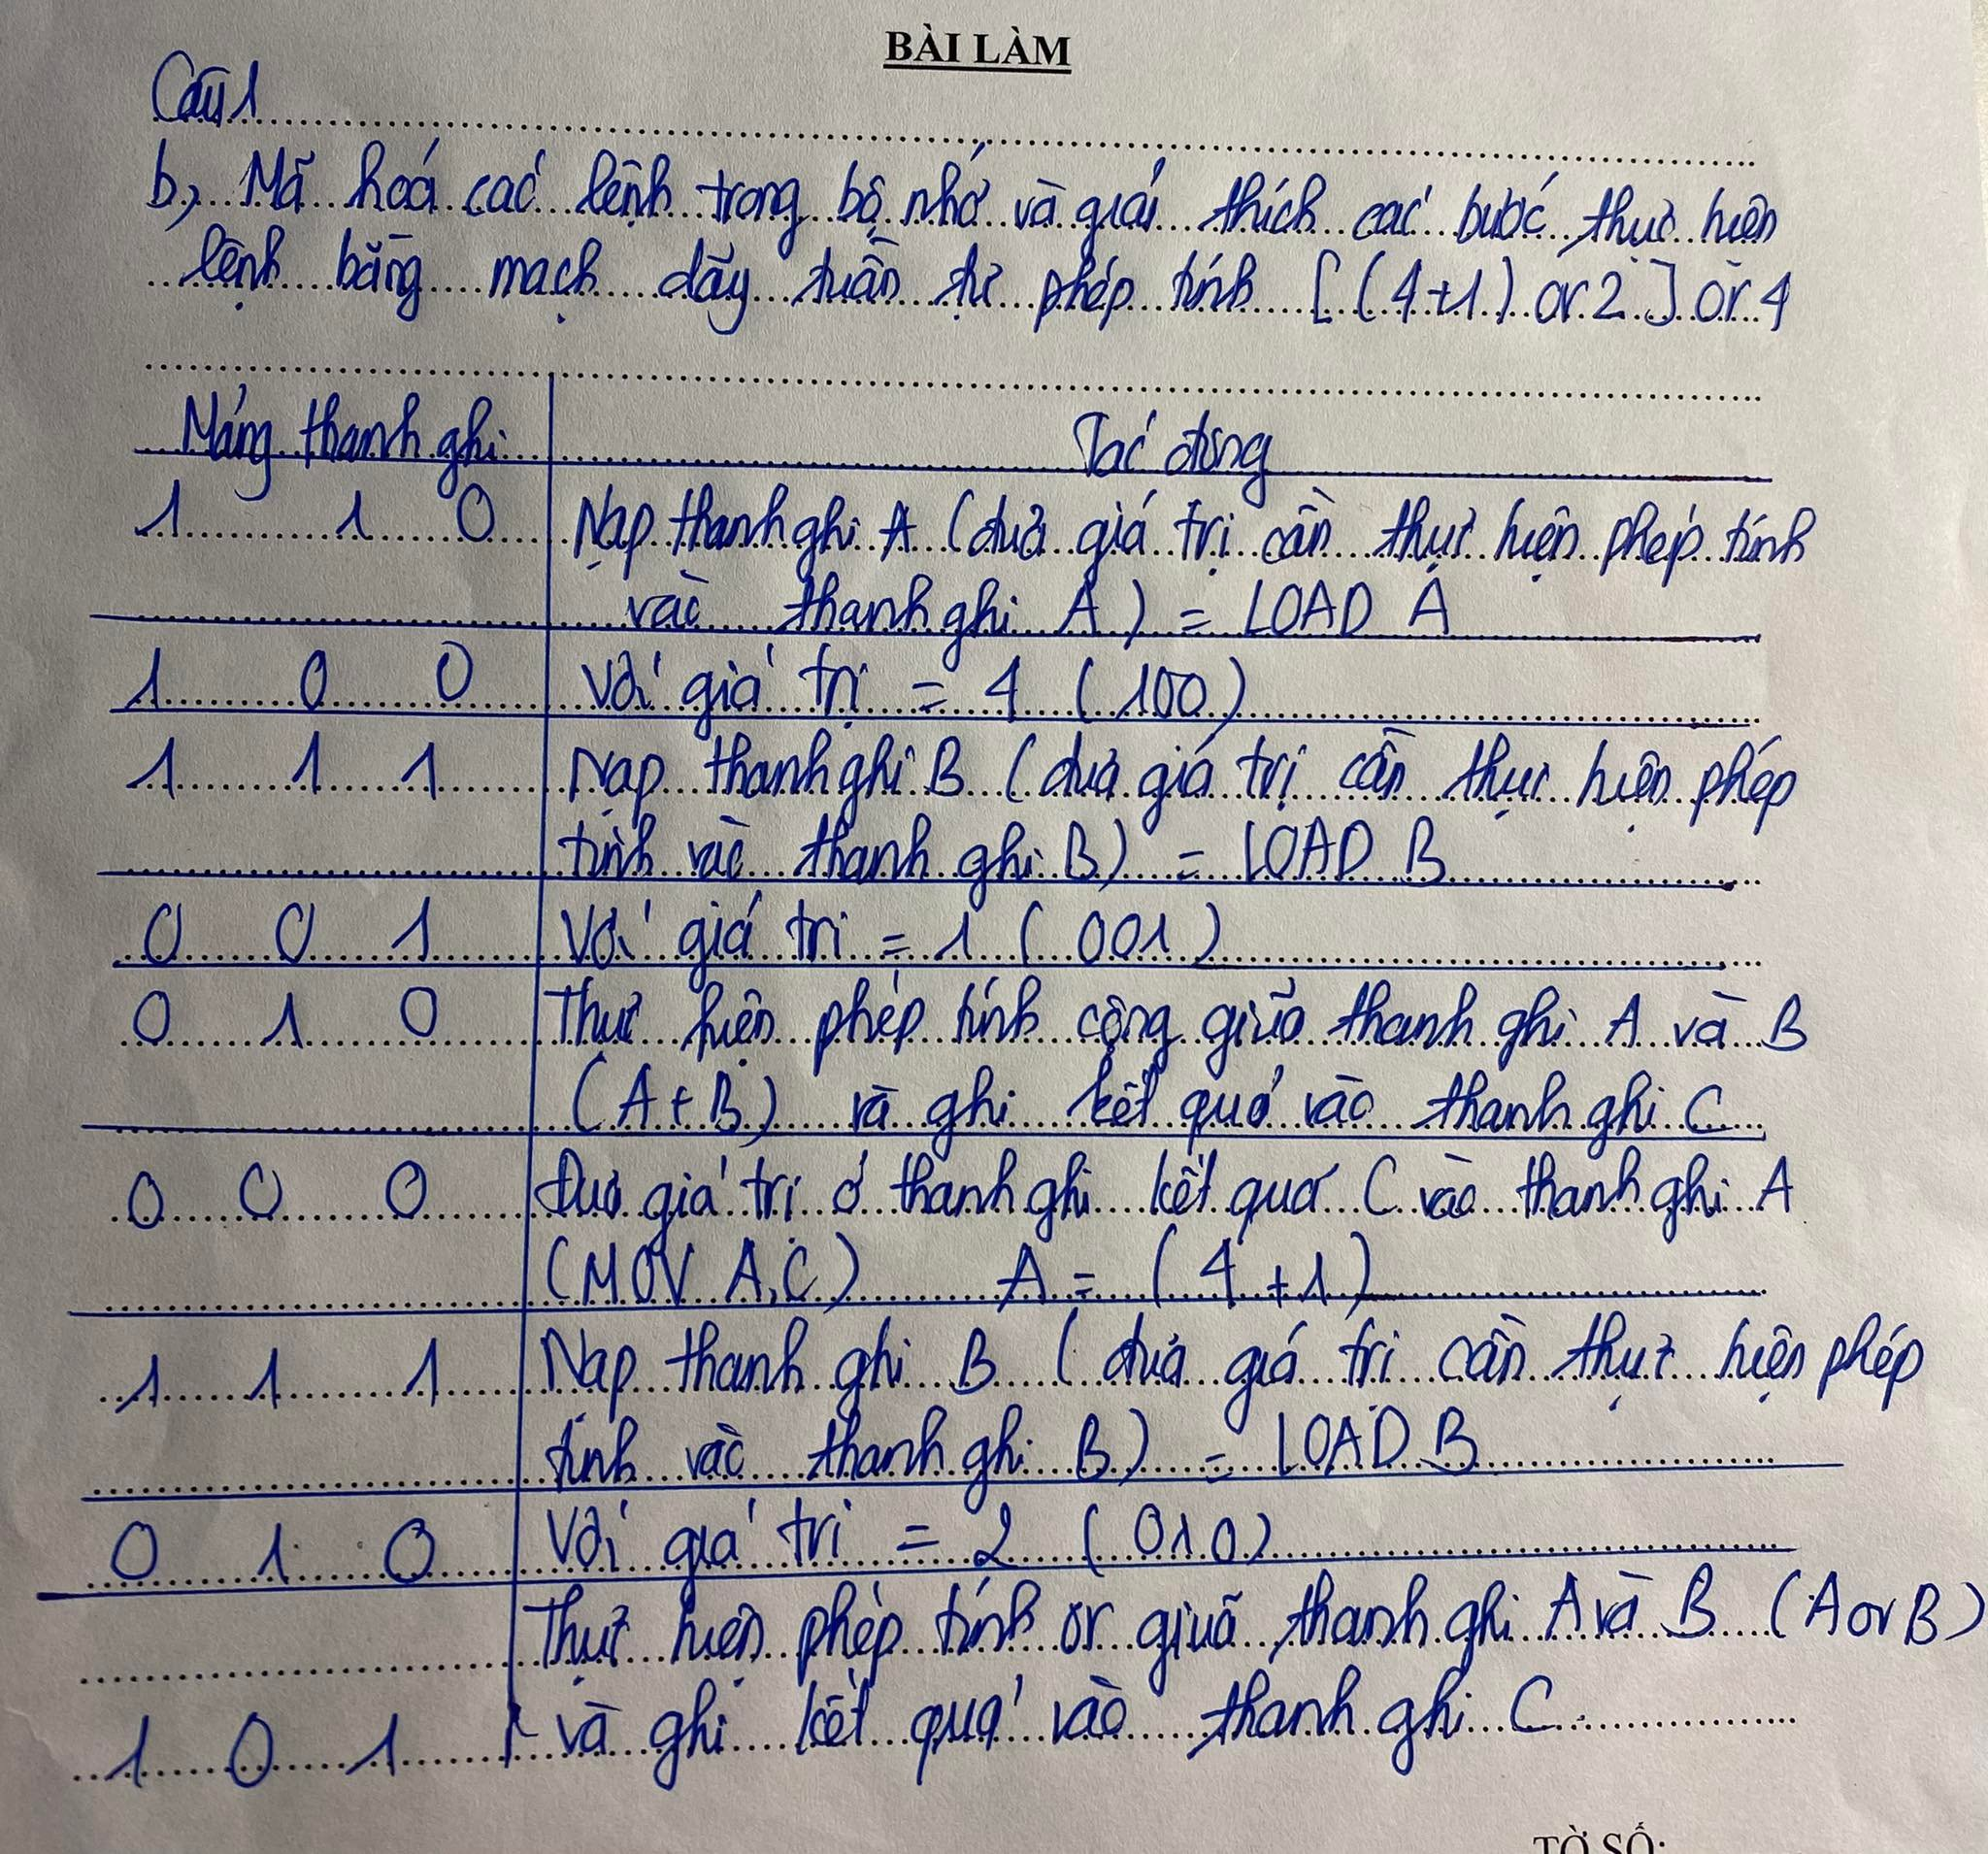 BÀI LÀM
Câu 1
b, Mã hoá các lệnh trong bộ nhớ và giải thích các bước thực hiện
lệnh bằng mạch dãy tuần tự phép tính [(4+1) or 2] or 4
Mảng thanh ghi Tác động
1 1 0 Nạp thanh ghi A (đưa giá trị cần thực hiện phép tính
vào thanh ghi A) = LOAD A
1 0 0 Với giá trị = 4 (100)
1 1 1 Nạp thanh ghi B (đưa giá trị cần thực hiện phép
tính vào thanh ghi B) = LOAD B
0 0 1 Với giá trị = 1 (001)
0 1 0 Thực hiện phép tính cộng giữa thanh ghi A và B
(A+B) và ghi kết quả vào thanh ghi C
0 0 0 Đưa giá trị ở thanh ghi kết quả C vào thanh ghi A
(MOV A,C) A = (4+1)
1 1 1 Nạp thanh ghi B (đưa giá trị cần thực hiện phép
tính vào thanh ghi B) = LOAD B
0 1 0 Với giá trị = 2 (010)
Thực hiện phép tính or giữa thanh ghi A và B (A or B)
1 0 1 và ghi kết quả vào thanh ghi C
TỜ SỐ: